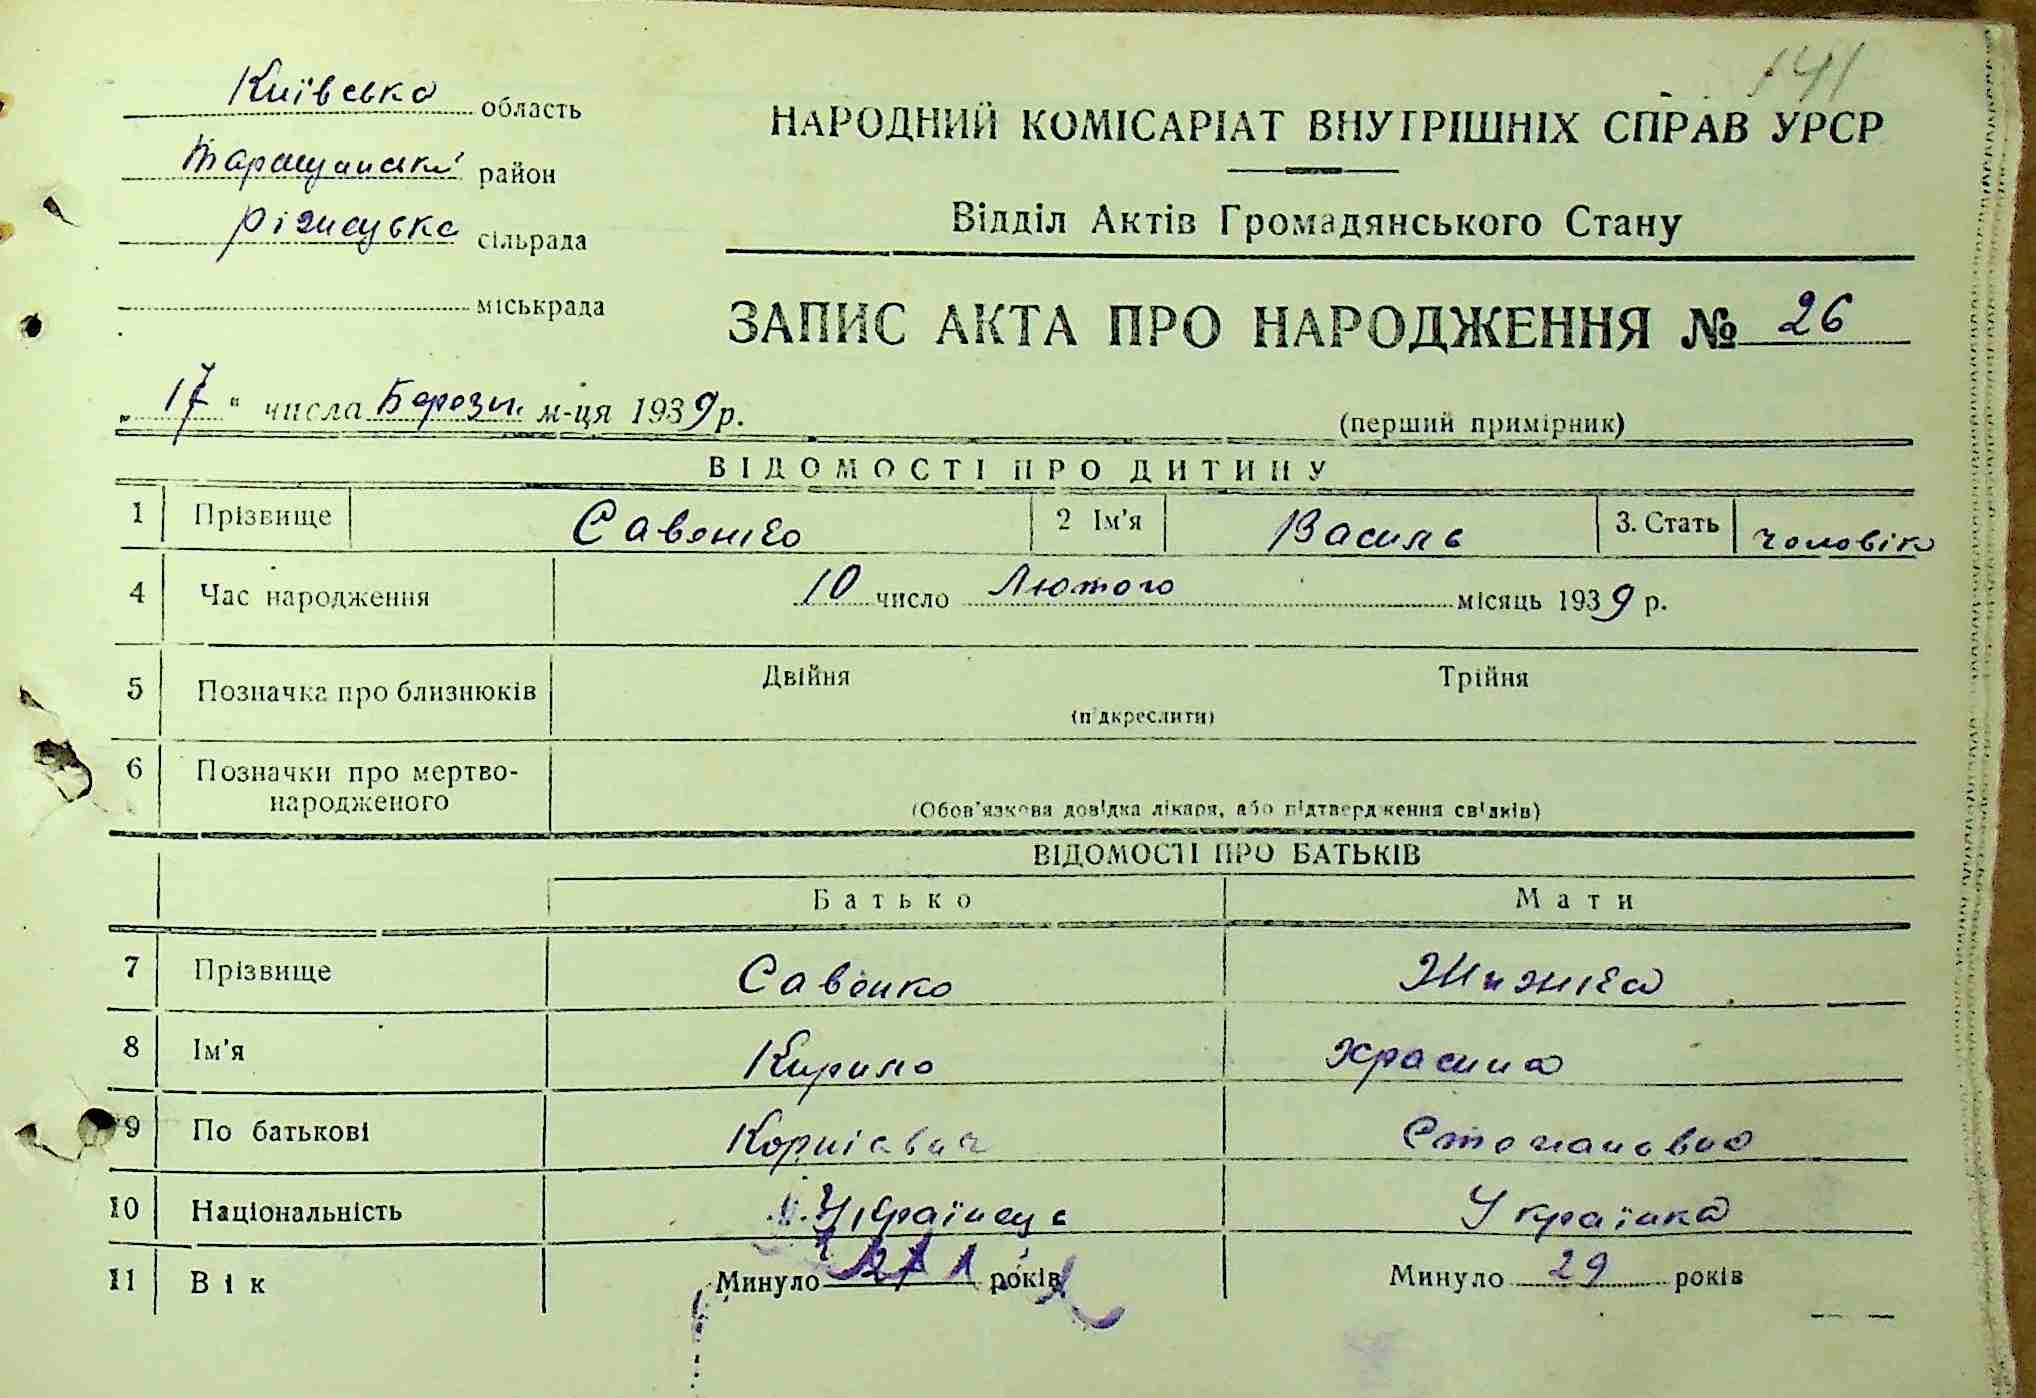 141
Київська область
Таращанськ. район
Різнецька сільрада
міськрада
НАРОДНИЙ КОМІСАРІАТ ВНУТРІШНІХ СПРАВ УРСР
Відділ Актів Громадянського Стану
ЗАПИС АКТА ПРО НАРОДЖЕННЯ № 26
„ 17 “ числа Березн. м-ця 1939 р.
(перший примірник)
ВІДОМОСТІ ПРО ДИТИНУ
1 Прізвище Савенко 2 Ім'я Василь 3. Стать чоловік
4 Час народження 10 число Лютого місяць 1939 р.
5 Позначка про близнюків Двійня Трійня
(підкреслити)
6 Позначки про мертво-
народженого
(Обов'язкова довідка лікаря, або підтвердження свідків)
ВІДОМОСТІ ПРО БАТЬКІВ
Батько Мати
7 Прізвище Савенко
8 Ім'я Кирило
9 По батькові Корнієвич Степановна
10 Національність Українець Українка
11 Вік Минуло років Минуло 29 років